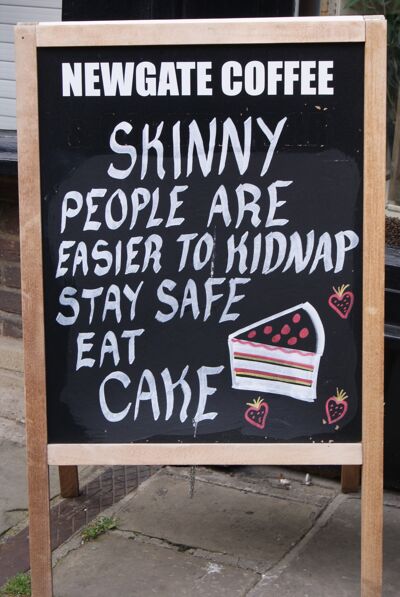 NEWGATE COFFEE
SKINNY
PEOPLE ARE
EASIER TO KIDNAP
STAY SAFE
EAT
CAKE